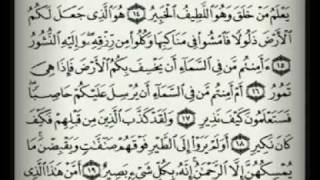 يَعْلَمُ مَنْ خَلَقَ وَهُوَ اللَّطِيفُ الْخَبِيرُ ١٤ هُوَ الَّذِى جَعَلَ لَكُمُ
الْأَرْضَ ذَلُولًا فَامْشُوا فِى مَنَاكِبِهَا وَكُلُوا مِن رِّزْقِهِ وَإِلَيْهِ النُّشُورُ
١٥ ءَأَمِنتُم مَّن فِى السَّمَاءِ أَن يَخْسِفَ بِكُمُ الْأَرْضَ فَإِذَا هِىَ
تَمُورُ ١٦ أَمْ أَمِنتُم مَّن فِى السَّمَاءِ أَن يُرْسِلَ عَلَيْكُمْ حَاصِبًا
فَسَتَعْلَمُونَ كَيْفَ نَذِيرِ ١٧ وَلَقَدْ كَذَّبَ الَّذِينَ مِن قَبْلِهِمْ فَكَيْفَ
كَانَ نَكِيرِ ١٨ أَوَلَمْ يَرَوْا إِلَى الطَّيْرِ فَوْقَهُمْ صَافَّاتٍ وَيَقْبِضْنَ مَا
يُمْسِكُهُنَّ إِلَّا الرَّحْمَٰنُ إِنَّهُ بِكُلِّ شَىْءٍ بَصِيرٌ ١٩ أَمَّنْ هَٰذَا الَّذِى